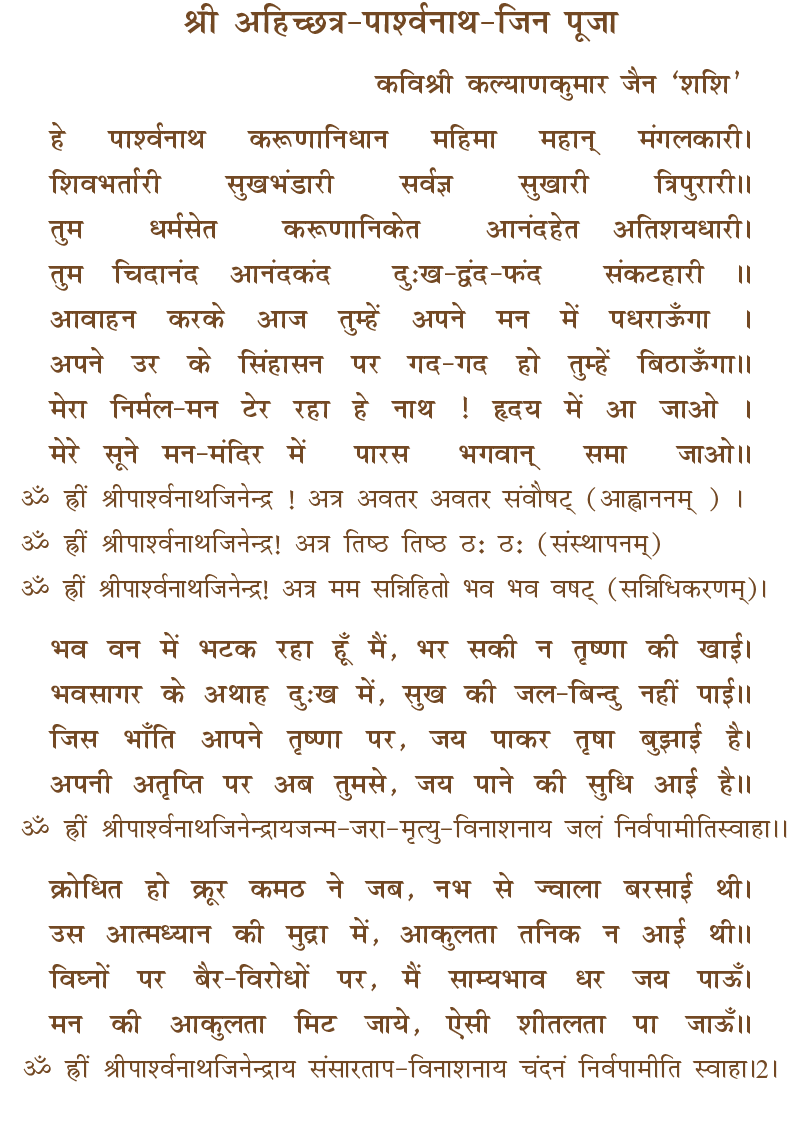 श्री अहिच्छत्र-पार्श्वनाथ-जिन पूजा
कविश्री कल्याणकुमार जैन ‘शशि’
हे पार्श्वनाथ करूणानिधान महिमा महान् मंगलकारी।
शिवभर्तारी सुखभंडारी सर्वज्ञ सुखारी त्रिपुरारी॥
तुम धर्मसेत करूणानिकेत आनंदहेत अतिशयधारी।
तुम चिदानंद आनंदकंद दुःख-द्वंद-फंद संकटहारी ॥
आवाहन करके आज तुम्हें अपने मन में पधराऊँगा ।
अपने उर के सिंहासन पर गद-गद हो तुम्हें बिठाऊँगा॥
मेरा निर्मल-मन टेर रहा हे नाथ ! हृदय में आ जाओ ।
मेरे सूने मन-मंदिर में पारस भगवान् समा जाओ॥
ॐ ह्रीं श्रीपार्श्वनाथजिनेन्द्र ! अत्र अवतर अवतर संवौषट् (आह्वाननम् ) ।
ॐ ह्रीं श्रीपार्श्वनाथजिनेन्द्र! अत्र तिष्ठ तिष्ठ ठः ठः (संस्थापनम्)
ॐ ह्रीं श्रीपार्श्वनाथजिनेन्द्र! अत्र मम सन्निहितो भव भव वषट् (सन्निधिकरणम्)।
भव वन में भटक रहा हूँ मैं, भर सकी न तृष्णा की खाई।
भवसागर के अथाह दुःख में, सुख की जल-बिन्दु नहीं पाई॥
जिस भाँति आपने तृष्णा पर, जय पाकर तृषा बुझाई है।
अपनी अतृप्ति पर अब तुमसे, जय पाने की सुधि आई है॥
ॐ ह्रीं श्रीपार्श्वनाथजिनेन्द्रायजन्म-जरा-मृत्यु-विनाशनाय जलं निर्वपामीतिस्वाहा।।
क्रोधित हो क्रूर कमठ ने जब, नभ से ज्वाला बरसाई थी।
उस आत्मध्यान की मुद्रा में, आकुलता तनिक न आई थी॥
विघ्नों पर बैर-विरोधों पर, मैं साम्यभाव धर जय पाऊँ।
मन की आकुलता मिट जाये, ऐसी शीतलता पा जाऊँ॥
ॐ ह्रीं श्रीपार्श्वनाथजिनेन्द्राय संसारताप-विनाशनाय चंदनं निर्वपामीति स्वाहा।2।